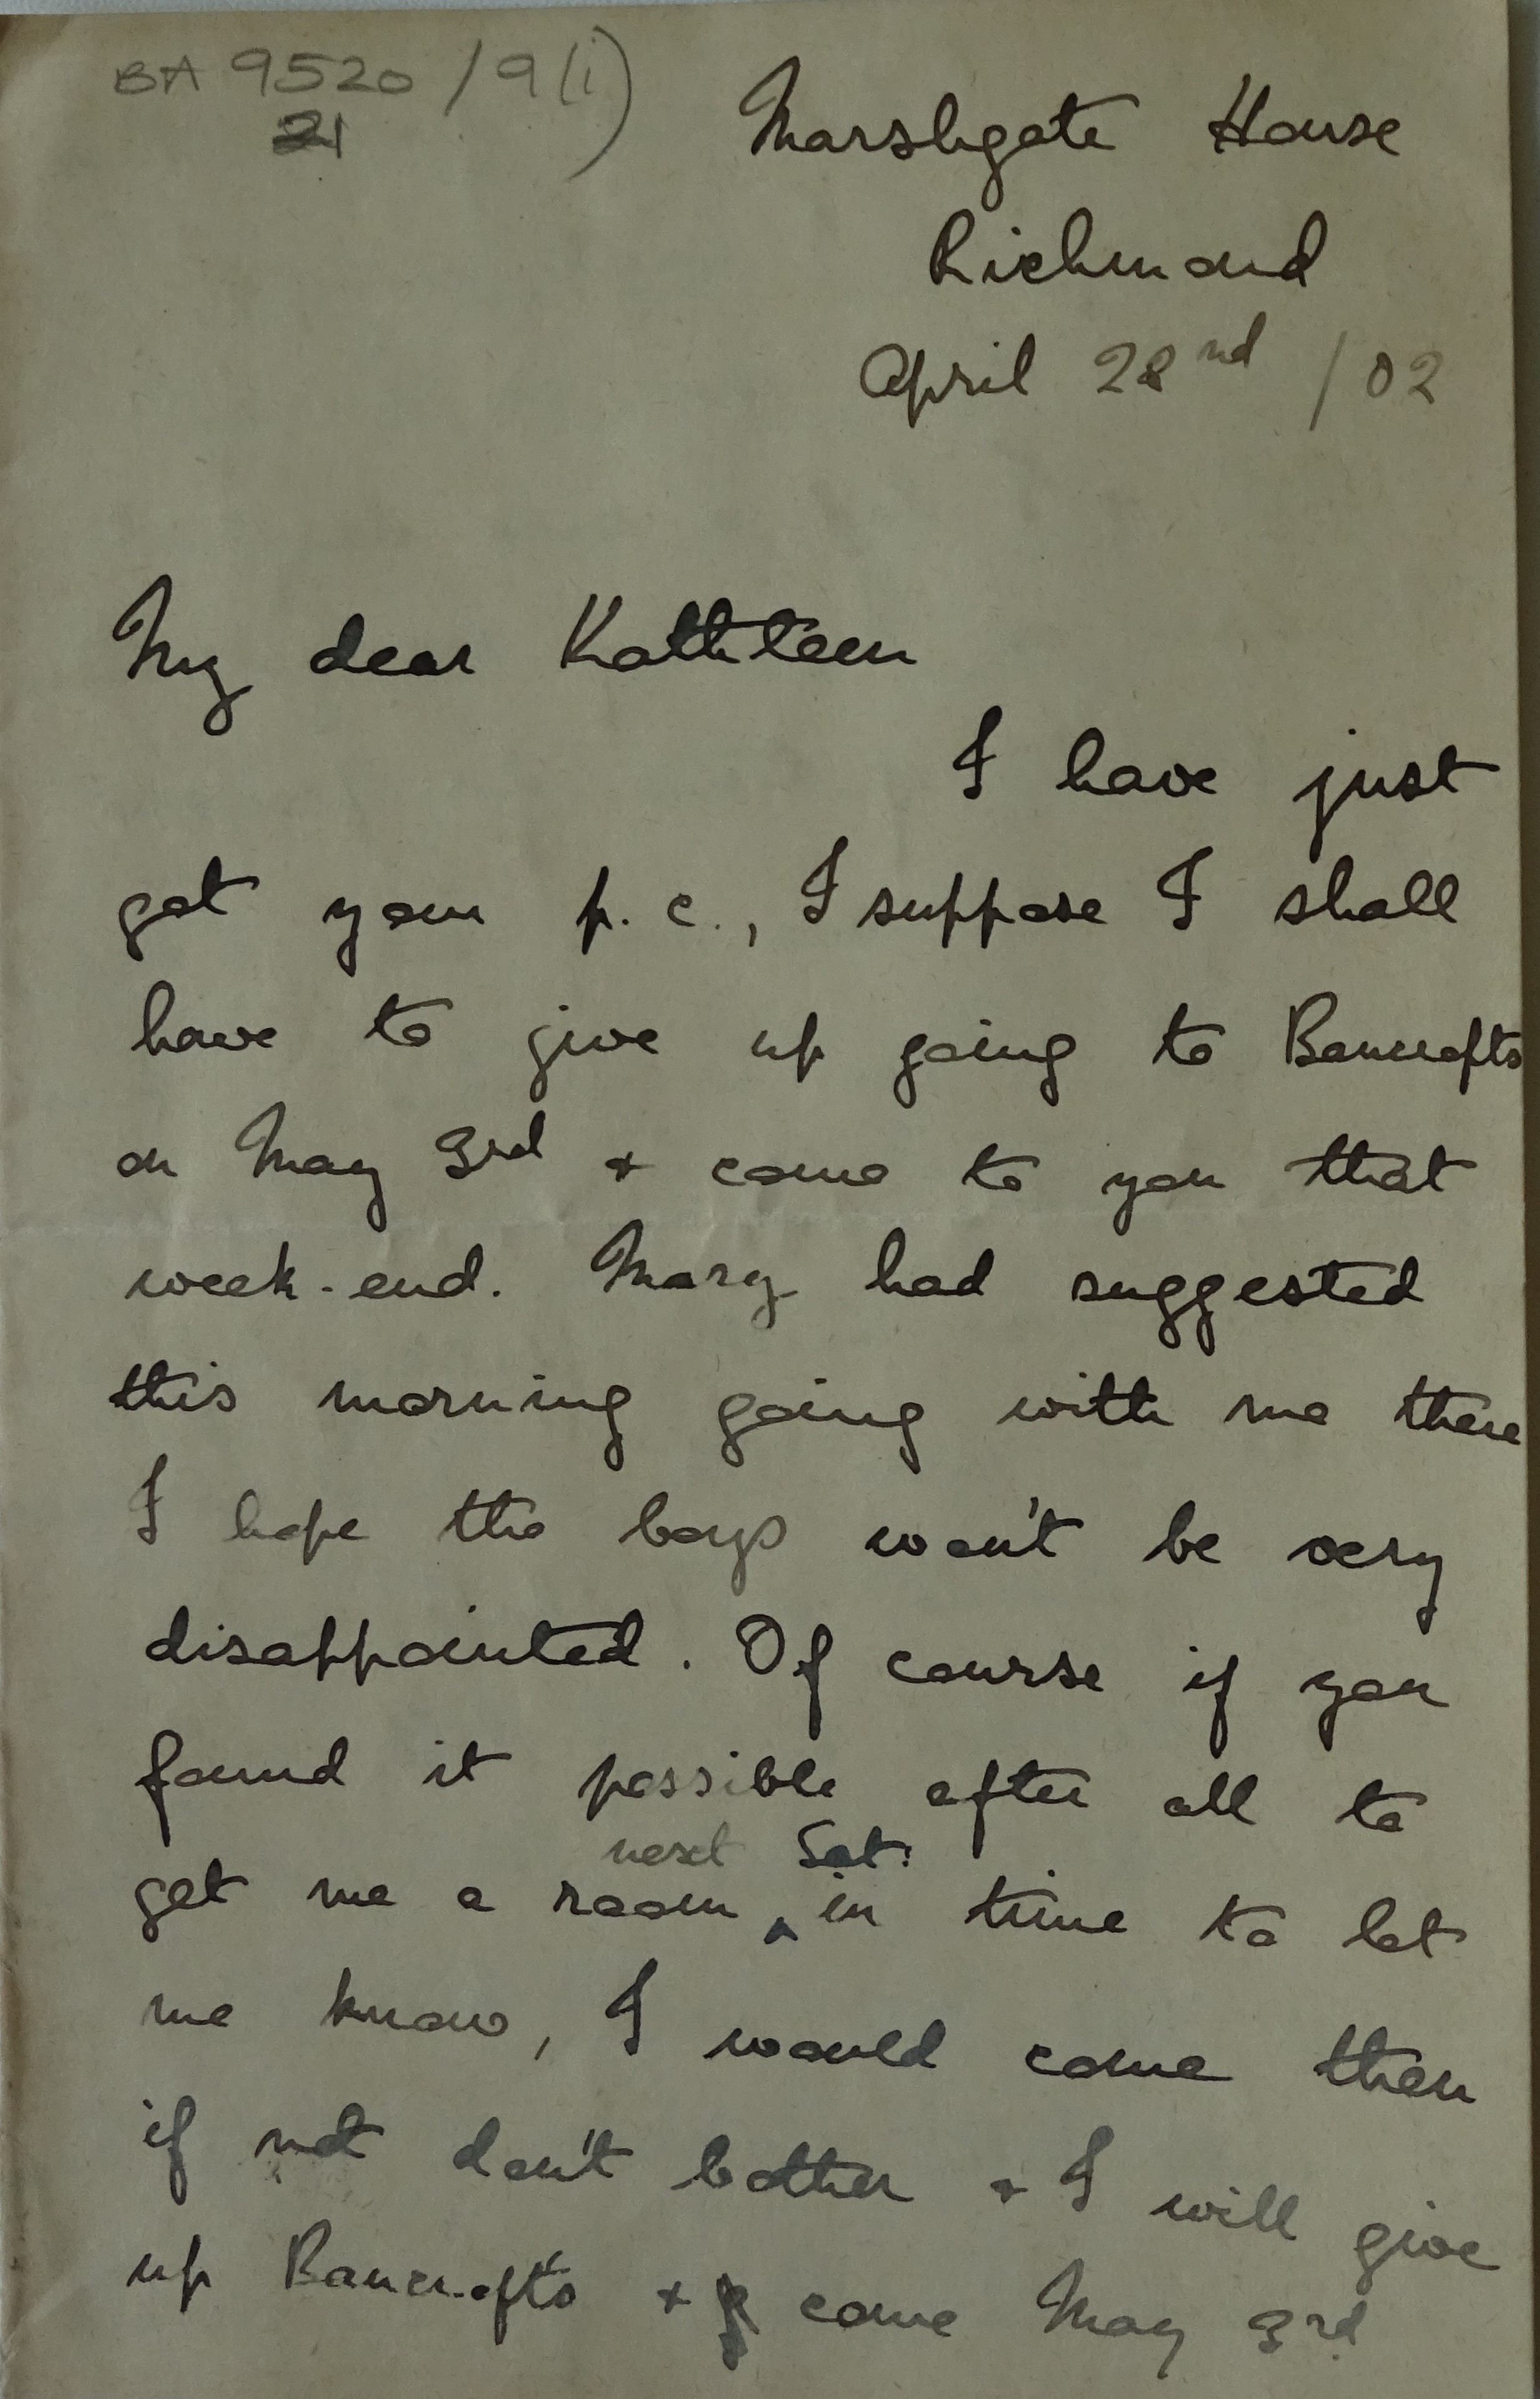 BA 9520/9(i)
21
Marshgate House
Richmond
April 28nd /02
My dear Kathleen
I have just
got your p.c., I suppose I shall
have to give up going to Bancrofts
on May 3rd & come to you that
week-end. Mary had suggested
this morning going with me there
I hope the boys won't be very
disappointed. Of course if you
found it possible after all to
next Sat:
get me a room ^ in time to let
me know, I would come then
if not don't bother & I will give
up Bancrofts & come May 3rd